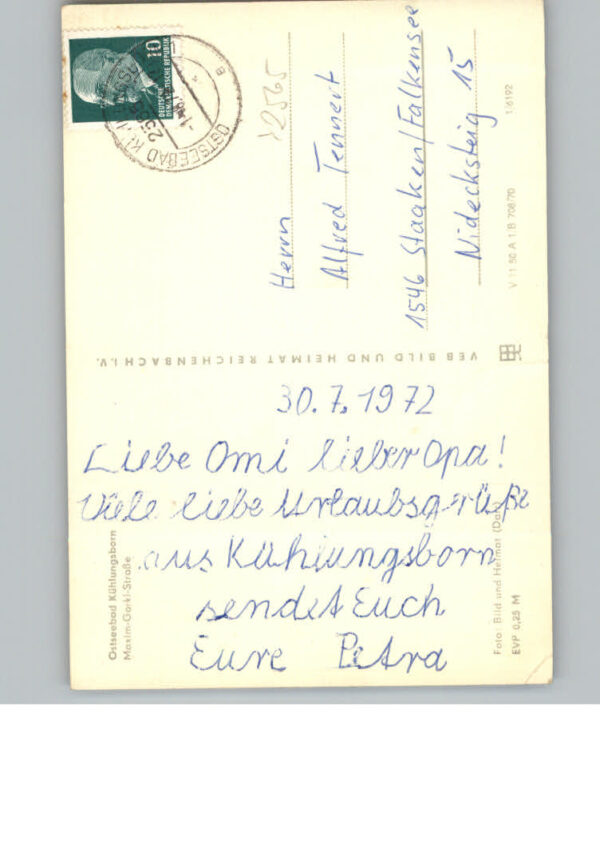 30.7.1972
Liebe Omi lieber Opa!
Viele liebe Urlaubsgrüße
aus Kühlungsborn
sendet Euch
Eure Petra
Ostseebad Kühlungsborn
Maxim-Gorki-Straße
Foto: Bild und Heimat
EVP 0,25 M
VEB BILD UND HEIMAT REICHENBACH I.V.
Herrn
Alfred Tennert
1546 Staaken/Falkensee
Nidecksteig 15
V 11 50 A 1 B 708/70
1/6192
10
DEUTSCHE
DEMOKRATISCHE REPUBLIK
OSTSEEBAD